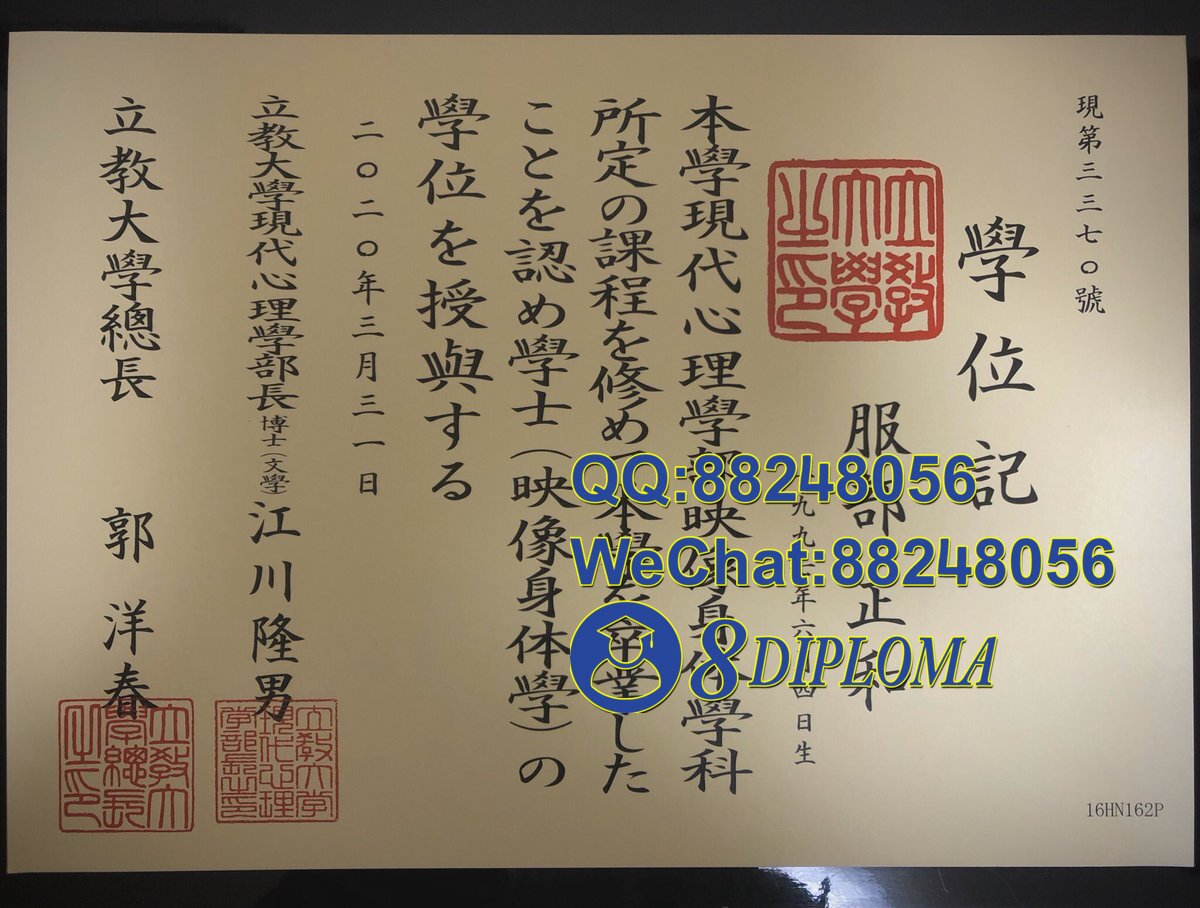 現第三三七〇號
學位記
服部正和
九九 年六 四日生
本學現代心理學部映像身体學科
所定の課程を修め本學を卒業した
ことを認め學士（映像身体學）の
學位を授與する
二〇二〇年三月三一日
立教大學現代心理學部長 博士（文學） 江川隆男
立教大學總長 郭洋春
立教大學之印
立教大学現代心理学部長之印
立教大學總長之印
16HN162P
QQ:88248056
WeChat:88248056
8DIPLOMA